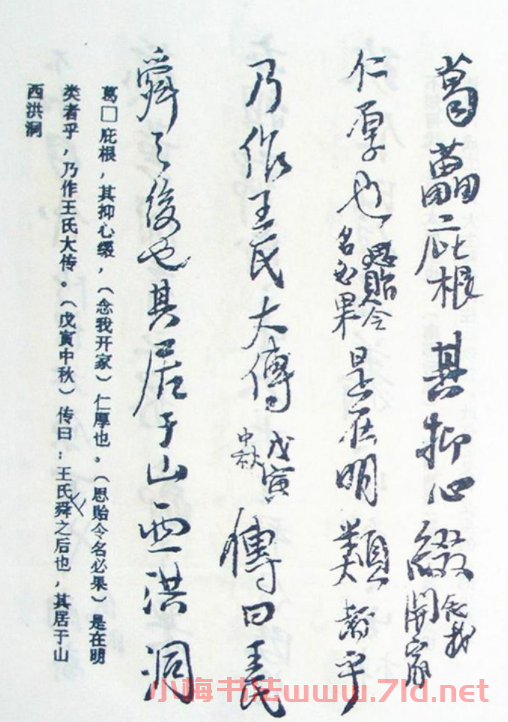 葛藟庇根其抑心缀念我開家
仁厚也思貽令名必果是在明類者乎
乃作王氏大傳戊寅中秋傳曰王氏
舜之後也其居于山西洪洞
葛□庇根，其抑心缀，（念我开家）仁厚也。（恩贻令名必果）是在明
类者乎，乃作王氏大传。（戊寅中秋）传曰：王氏舜之后也，其居于山
西洪洞
小梅书法www.7ld.net